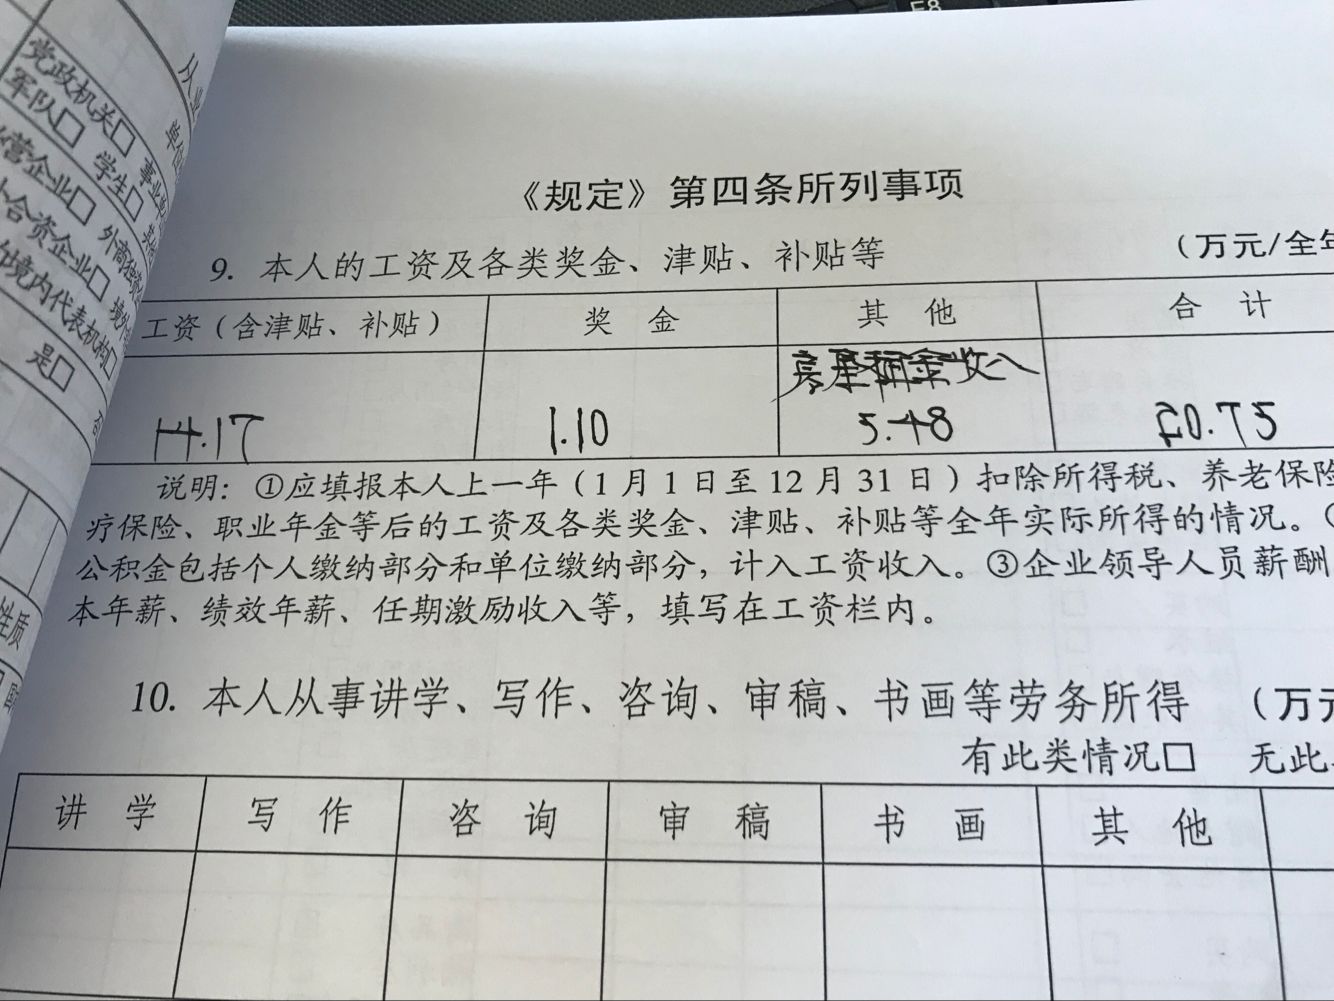 F8
从业
单位
党政机关□ 事业
军队□ 学生□ 其他
营企业□ 外商独资
合资企业□ 境外
境内代表机构□
是□ 否
性质
《规定》第四条所列事项
9. 本人的工资及各类奖金、津贴、补贴等 （万元/全年
工资（含津贴、补贴） 奖 金 其 他 合 计
房屋租金收入
14.17 1.10 5.48 20.75
说明：①应填报本人上一年（1月1日至12月31日）扣除所得税、养老保险
疗保险、职业年金等后的工资及各类奖金、津贴、补贴等全年实际所得的情况。
公积金包括个人缴纳部分和单位缴纳部分，计入工资收入。③企业领导人员薪酬
本年薪、绩效年薪、任期激励收入等，填写在工资栏内。
10. 本人从事讲学、写作、咨询、审稿、书画等劳务所得 （万元
有此类情况□ 无此
讲 学 写 作 咨 询 审 稿 书 画 其 他